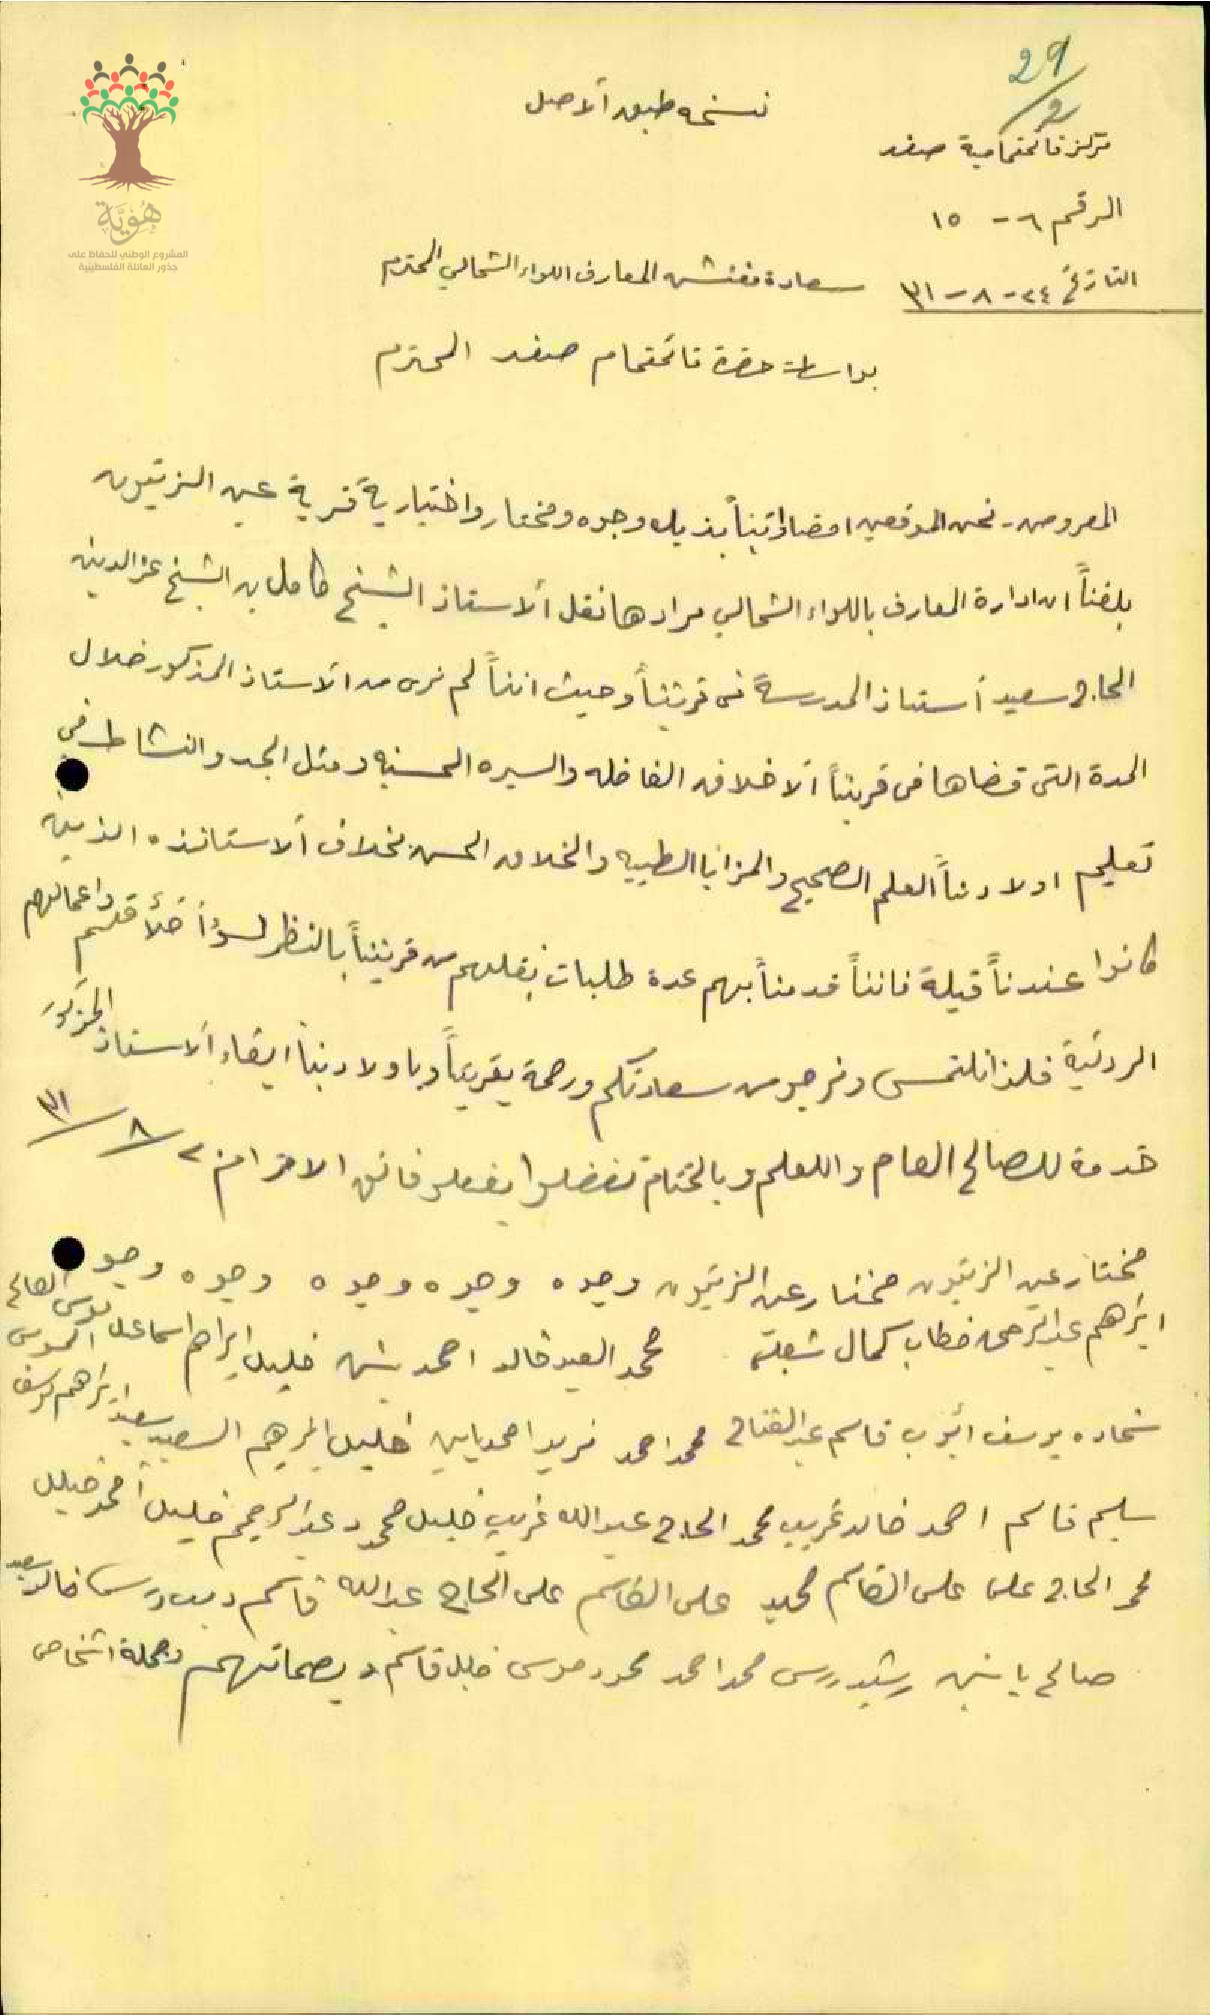 29/2
نسخه طبق ألاصل
مركز قائمقامية صفد
الرقم ٦ - ١٥
التاريخ ٢٤ - ٨ - ٣١
سعادة مفتش المعارف اللواء الشمالي المحترم
بواسطة حضرة قائمقام صفد المحترم
المعروض - نحن الموقعين امضاواتيناً بذيله وجوه ومختار واختيارية قرية عين الزيتون
بلغناً ان ادارة المعارف باللواء الشمالي مرادها نقل ألاستاذ الشيخ كامل بن الشيخ عزالدين
الحاج سعيد أستاذ المدرسة في قريتناً وحيث انناً لم نرى من ألاستاذ المذكور خلال
المدة التى قضاها في قريتناً ألاخلاق الفاضله والسيره الحسنه ومثل الجد والنشاط في
تعليم اولادناً العلم الصحيح والمزايا الطيبه والخلاق الحسن بخلاف ألاستاتذه الذين
كانوا عندناً قبلة فانناً قدمناً بهم عدة طلبات بنقلهم من قريتناً بالنظر لسؤ أخلأقهم واعمالهم
الردئية فلذا نلتمس ونرجو من سعادتكم ورحمة بقريتناً وبأولادنا ابقاء ألاستاذ المذكور
خدمة للصالح العام واللعلم وبالختام تفضلوا بقبول فائق الاحترام ٨/ ٣١
مختار عين الزيتون مختار عين الزيتون وجوه وجوه وجوه وجوه وجوه
ابراهيم عبدالرحمن خطاب كمال شعبان محمد العبد خالد احمد يسن خليل ابراهيم اسماعيل موسى الصالح الموسى
شحاده يوسف أيوب قاسم عبدالفتاح محمد احمد فريد احمد ياسين خليل ابراهيم السعيد سعيد ابراهيم يوسف
سليم قاسم احمد خالد غريب محمد الحاج عبدالله غريب خليل محمود عبدالرحيم خليل أحمد خليل
محمد الحاج على على القاسم محمد على القاسم على الحاج عبدالله قاسم ديب خالد سعيد
صالح ياسين رشيد محمد احمد محمود موسى خليل قاسم وبصماتهم وجملة اشخاص
هُوِيَّة
المشروع الوطني للحفاظ على
جذور العائلة الفلسطينية